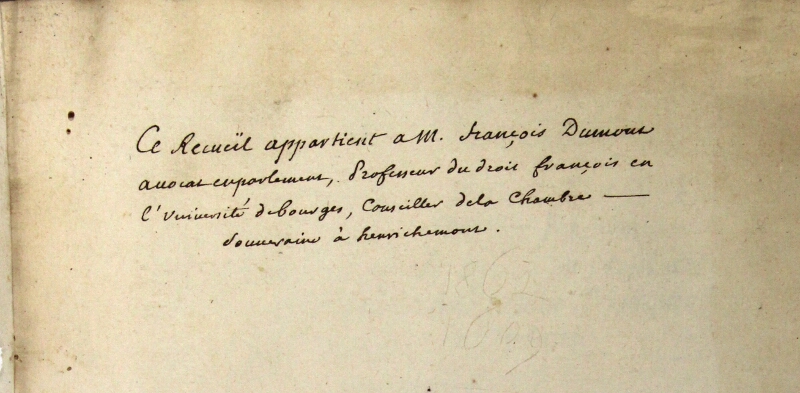 Ce Recueïl appartient a M. françois Dumont
avocat enparlement, Professeur du droit françois en
l'Vniversité debourges, Conseiller dela Chambre —
Souveraine à henrichemont.
1862